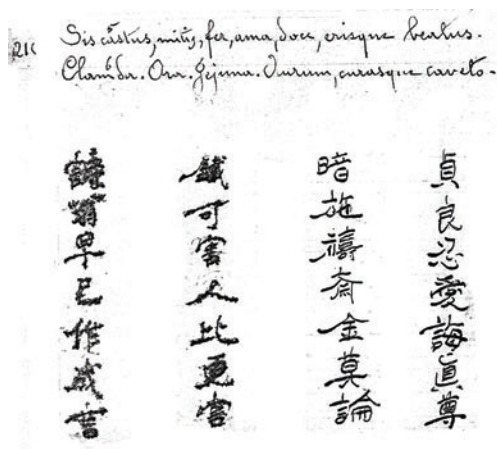 Sis castus, mitis, fer, ama, doce, erisque beatus.
Clam da. Ora. Jejuna. Aurum, curasque caveto.
貞良忍愛誨眞尊
暗施禱斎金莫論
鐵可害人比更害
早已作成言